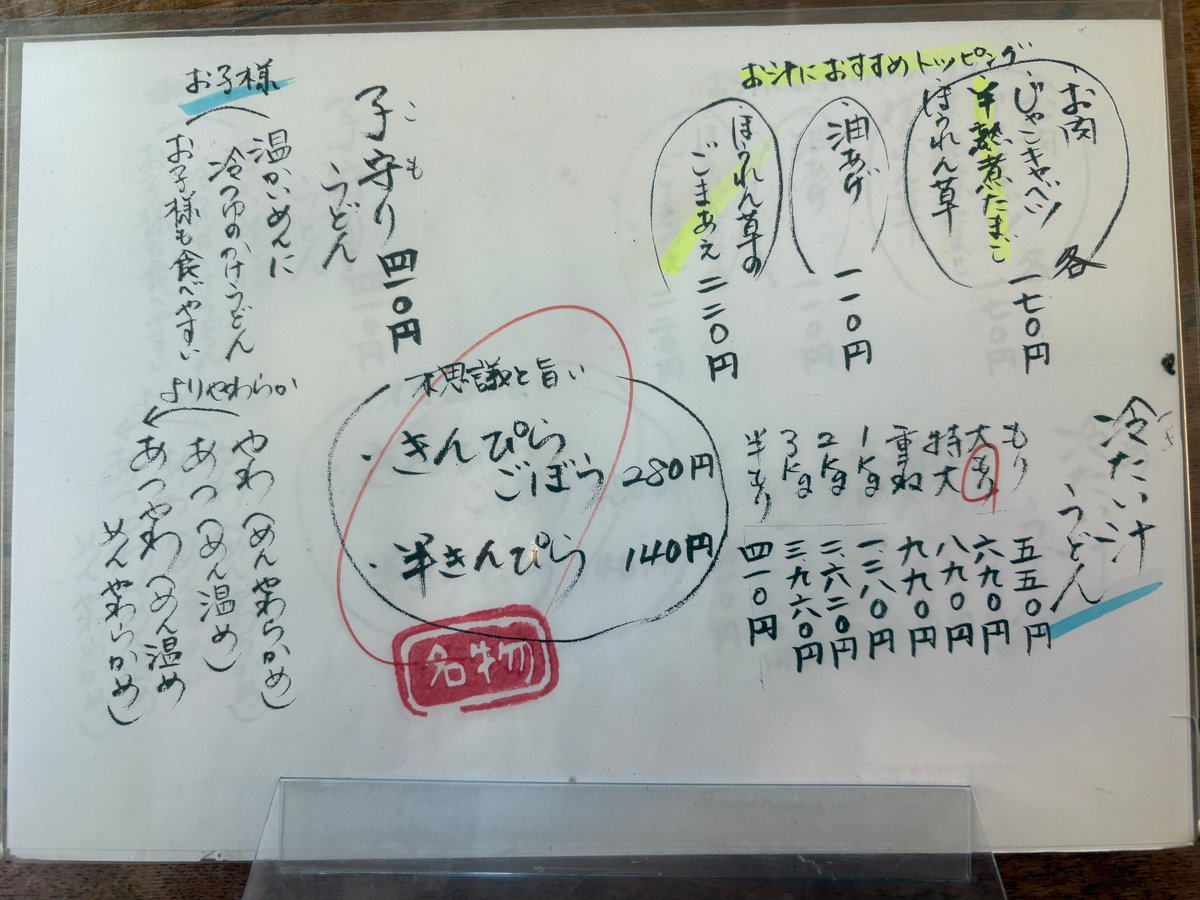 お汁におすすめトッピング
お肉
じゃこキャベツ
半熟煮たまご
ほうれん草
各
一七〇円
油あげ
一一〇円
ほうれん草の
ごまあえ
二二〇円
冷たい汁
うどん
もり 五五〇円
大もり 六九〇円
特大 八九〇円
重ね 九九〇円
1Kg 一、二八〇円
2Kg 二、六二〇円
3Kg 三、九六〇円
半もり 四一〇円
不思議と旨い
・きんぴら
ごぼう 280円
・半きんぴら 140円
名物
こも
子守り 四一〇円
うどん
お子様
温かいめんに
冷つゆのかけうどん
お子様も食べやすい
よりやわらか
やわ(めんやわらかめ)
あつ(めん温め)
あつやわ(めん温め
めんやわらかめ)